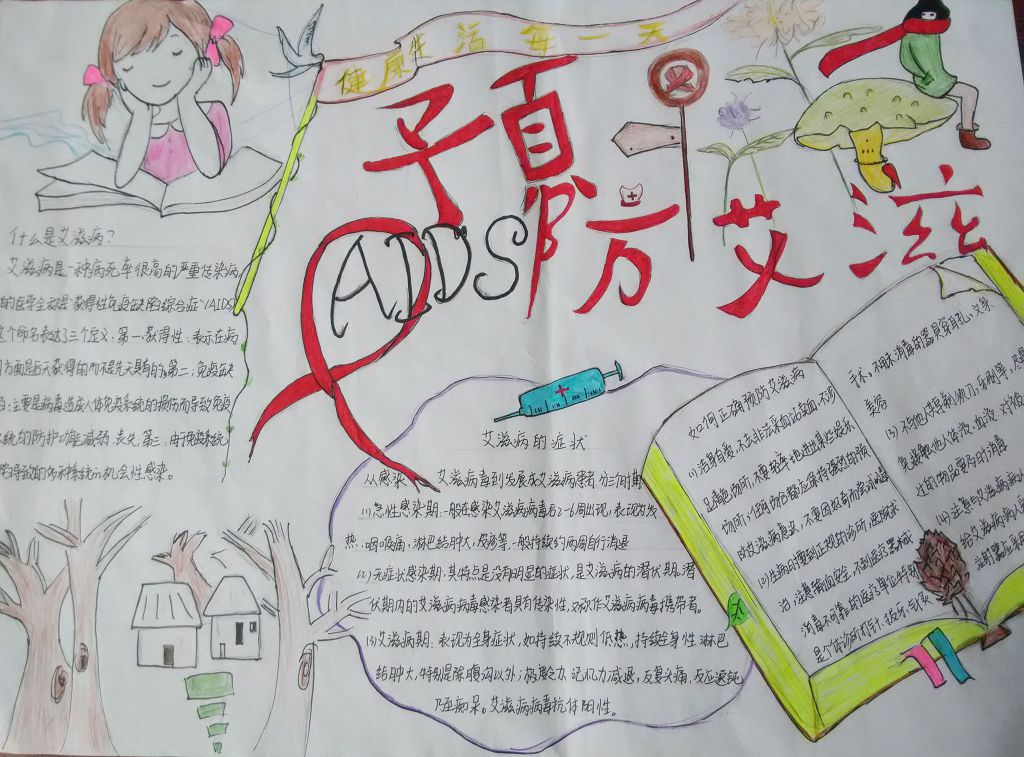 健康生活每一天
预防艾滋
AIDS
什么是艾滋病？
艾滋病是一种病死率很高的严重传染病，
的医学全称是"获得性免疫缺陷综合症"(AIDS
这个命名表达了三个定义：第一，获得性：表示在病
方面是后天获得的而不是先天具有的；第二：免疫缺
：主要是病毒造成人体免疫系统的损伤而导致免疫
系统的防护功能减弱、丧失。第三，由于免疫系统
导致的各种系统的机会性感染。
艾滋病的症状
从感染 艾滋病毒到发展成艾滋病患者分三个时期
(1)急性感染期：一般在感染艾滋病病毒后2-6周出现，表现为发
热、咽喉痛，淋巴结肿大，皮疹等，一般持续约两周自行消退
(2)无症状感染期：其特点是没有明显的症状，是艾滋病的潜伏期。潜
伏期内的艾滋病病毒感染者具有传染性，又称作艾滋病病毒携带者。
(3)艾滋病期：表现为全身症状，如持续不规则低热，持续全身性淋巴
结肿大，特别是除腹沟以外；极度乏力、记忆力减退，反复头痛，反应迟钝
乃至痴呆。艾滋病病毒抗体阳性。
如何正确预防艾滋病
(1)洁身自爱，不去非法采血站卖血，不涉
足色情场所，不要轻率地进出某些娱乐
场所；任何场合都应保持强烈的预
防艾滋病意识，不要因好奇而尝试吸毒
(2)生病时要到正规的诊所、医院求
治，注意输血安全，不到医疗器械
消毒不可靠的医疗单位特别
是个体诊所打针、拔牙、针灸
手术。不用未消毒的器具穿耳孔、文身、
美容
(3)不与他人共用剃须刀、牙刷等，尽量
(4)注意与艾滋病病人